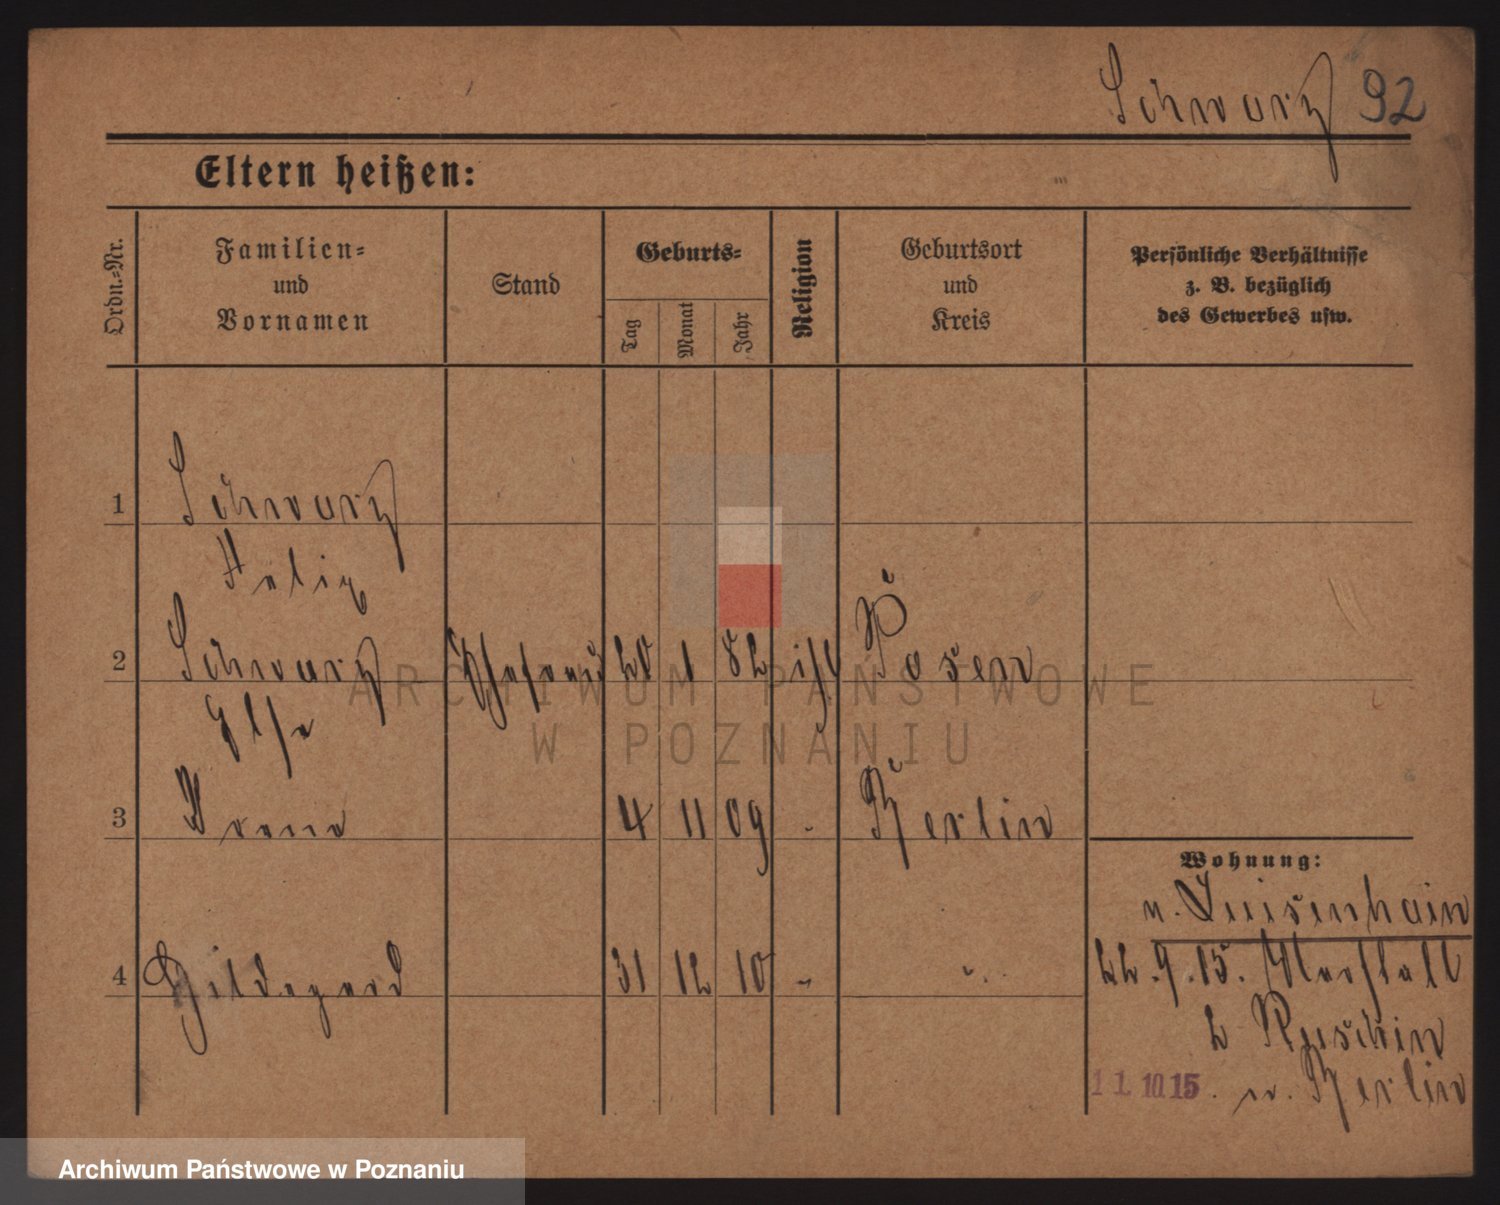 Schwarz 92
Eltern heißen:
Ordn.=Nr.
Familien=
und
Vornamen
Stand
Geburts=
Tag
Monat
Jahr
Religion
Geburtsort
und
Kreis
Persönliche Verhältnisse
z. B. bezüglich
des Gewerbes usw.
1 Schwarz
Felix
2 Schwarz Ehefrau 20 1 82 isr Posen
Else
3 4 11 09 " Berlin
4 Hildegard 31 12 10 " "
Wohnung:
n. Luisenhain
22.9.15. Marstall
b
11.10.15. n. Berlin
ARCHIWUM PAŃSTWOWE
W POZNANIU
Archiwum Państwowe w Poznaniu